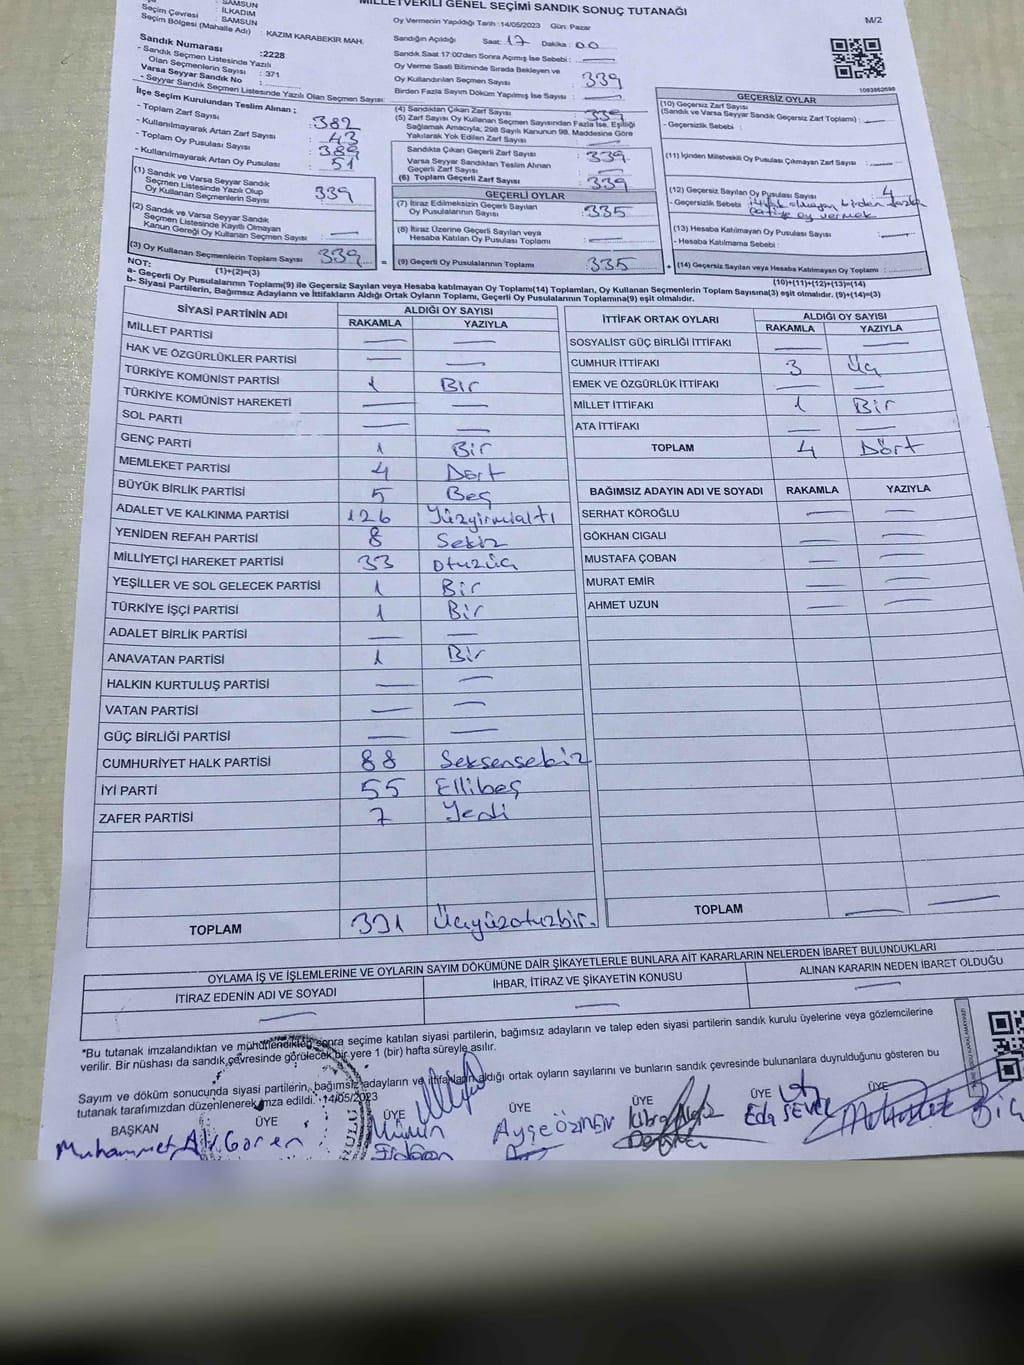 MİLLETVEKİLİ GENEL SEÇİMİ SANDIK SONUÇ TUTANAĞI
M/2
: SAMSUN
Seçim Çevresi : İLKADIM
: SAMSUN
Seçim Bölgesi (Mahalle Adı) : KAZIM KARABEKİR MAH.
Sandık Numarası :2228
- Sandık Seçmen Listesinde Yazılı
Olan Seçmenlerin Sayısı : 371
Varsa Seyyar Sandık No :
- Seyyar Sandık Seçmen Listesinde Yazılı Olan Seçmen Sayısı:
Oy Vermenin Yapıldığı Tarih :14/05/2023 Gün: Pazar
Sandığın Açıldığı Saat: 17 Dakika: 00
Sandık Saat 17:00'den Sonra Açımış İse Sebebi : —
Oy Verme Saati Bitiminde Sırada Bekleyen ve
Oy Kullandırılan Seçmen Sayısı 339
Birden Fazla Sayım Döküm Yapılmış İse Sayısı : —
İlçe Seçim Kurulundan Teslim Alınan ;
- Toplam Zarf Sayısı : 382
- Kullanılmayarak Artan Zarf Sayısı : 43
- Toplam Oy Pusulası Sayısı : 389
- Kullanılmayarak Artan Oy Pusulası : 51
(1) Sandık ve Varsa Seyyar Sandık
Seçmen Listesinde Yazılı Olup
Oy Kullanan Seçmenlerin Sayısı : 339
(2) Sandık ve Varsa Seyyar Sandık
Seçmen Listesinde Kayıtlı Olmayan
Kanun Gereği Oy Kullanan Seçmen Sayısı : —
(3) Oy Kullanan Seçmenlerin Toplam Sayısı : 339
(1)+(2)=(3)
(4) Sandıktan Çıkan Zarf Sayısı : 339
(5) Zarf Sayısı Oy Kullanan Seçmen Sayısından Fazla İse, Eşitliği
Sağlamak Amacıyla, 298 Sayılı Kanunun 98. Maddesine Göre
Yakılarak Yok Edilen Zarf Sayısı : —
Sandıkta Çıkan Geçerli Zarf Sayısı : 339
Varsa Seyyar Sandıktan Teslim Alınan
Geçerli Zarf Sayısı : —
(6) Toplam Geçerli Zarf Sayısı : 339
GEÇERLİ OYLAR
(7) İtiraz Edilmeksizin Geçerli Sayılan
Oy Pusulalarının Sayısı : 335
(8) İtiraz Üzerine Geçerli Sayılan veya
Hesaba Katılan Oy Pusulası Toplamı : —
= (9) Geçerli Oy Pusulalarının Toplamı : 335
1083862698
GEÇERSİZ OYLAR
(10) Geçersiz Zarf Sayısı
(Sandık ve Varsa Seyyar Sandık Geçersiz Zarf Toplamı) : —
- Geçersizlik Sebebi :
(11) İçinden Milletvekili Oy Pusulası Çıkmayan Zarf Sayısı : —
(12) Geçersiz Sayılan Oy Pusulası Sayısı : 4
- Geçersizlik Sebebi : ittifak olmayan birden fazla
partiye oy vermek
(13) Hesaba Katılmayan Oy Pusulası Sayısı : —
- Hesaba Katılmama Sebebi :
+ (14) Geçersiz Sayılan veya Hesaba Katılmayan Oy Toplamı :
(10)+(11)+(12)+(13)=(14)
NOT:
a- Geçerli Oy Pusulalarının Toplamı(9) ile Geçersiz Sayılan veya Hesaba katılmayan Oy Toplamı(14) Toplamları, Oy Kullanan Seçmenlerin Toplam Sayısına(3) eşit olmalıdır. (9)+(14)=(3)
b- Siyasi Partilerin, Bağımsız Adayların ve İttifakların Aldığı Ortak Oyların Toplamı, Geçerli Oy Pusulalarının Toplamına(9) eşit olmalıdır.
SİYASİ PARTİNİN ADI ALDIĞI OY SAYISI
RAKAMLA YAZIYLA
MİLLET PARTİSİ — —
HAK VE ÖZGÜRLÜKLER PARTİSİ — —
TÜRKİYE KOMÜNİST PARTİSİ 1 Bir
TÜRKİYE KOMÜNİST HAREKETİ — —
SOL PARTİ — —
GENÇ PARTİ 1 Bir
MEMLEKET PARTİSİ 4 Dört
BÜYÜK BİRLİK PARTİSİ 5 Beş
ADALET VE KALKINMA PARTİSİ 126 Yüzyirmialtı
YENİDEN REFAH PARTİSİ 8 Sekiz
MİLLİYETÇİ HAREKET PARTİSİ 33 Otuzüç
YEŞİLLER VE SOL GELECEK PARTİSİ 1 Bir
TÜRKİYE İŞÇİ PARTİSİ 1 Bir
ADALET BİRLİK PARTİSİ — —
ANAVATAN PARTİSİ 1 Bir
HALKIN KURTULUŞ PARTİSİ — —
VATAN PARTİSİ — —
GÜÇ BİRLİĞİ PARTİSİ — —
CUMHURİYET HALK PARTİSİ 88 Seksensekiz
İYİ PARTİ 55 Ellibeş
ZAFER PARTİSİ 7 Yedi
TOPLAM 331 Üçyüzotuzbir.
İTTİFAK ORTAK OYLARI ALDIĞI OY SAYISI
RAKAMLA YAZIYLA
SOSYALİST GÜÇ BİRLİĞİ İTTİFAKI — —
CUMHUR İTTİFAKI 3 Üç
EMEK VE ÖZGÜRLÜK İTTİFAKI — —
MİLLET İTTİFAKI 1 Bir
ATA İTTİFAKI — —
TOPLAM 4 Dört
BAĞIMSIZ ADAYIN ADI VE SOYADI RAKAMLA YAZIYLA
SERHAT KÖROĞLU — —
GÖKHAN CIGALI — —
MUSTAFA ÇOBAN — —
MURAT EMİR — —
AHMET UZUN — —
TOPLAM — —
OYLAMA İŞ VE İŞLEMLERİNE VE OYLARIN SAYIM DÖKÜMÜNE DAİR ŞİKAYETLERLE BUNLARA AİT KARARLARIN NELERDEN İBARET BULUNDUKLARI
İTİRAZ EDENİN ADI VE SOYADI İHBAR, İTİRAZ VE ŞİKAYETİN KONUSU ALINAN KARARIN NEDEN İBARET OLDUĞU
— — —
*Bu tutanak imzalandıktan ve mühürlendikten sonra seçime katılan siyasi partilerin, bağımsız adayların ve talep eden siyasi partilerin sandık kurulu üyelerine veya gözlemcilerine
verilir. Bir nüshası da sandık çevresinde görülecek bir yere 1 (bir) hafta süreyle asılır.
Sayım ve döküm sonucunda siyasi partilerin, bağımsız adayların ve ittifakların aldığı ortak oyların sayılarını ve bunların sandık çevresinde bulunanlara duyrulduğunu gösteren bu
tutanak tarafımızdan düzenlenerek imza edildi. 14/05/2023
BAŞKAN ÜYE ÜYE ÜYE ÜYE ÜYE ÜYE
Muhammet Ali Gören
Ayşe ÖZMEN
Eda SEVER